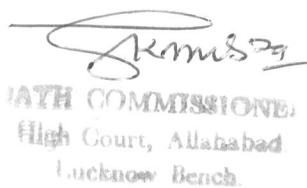 OATH COMMISSIONER
High Court, Allahabad
Lucknow Bench.